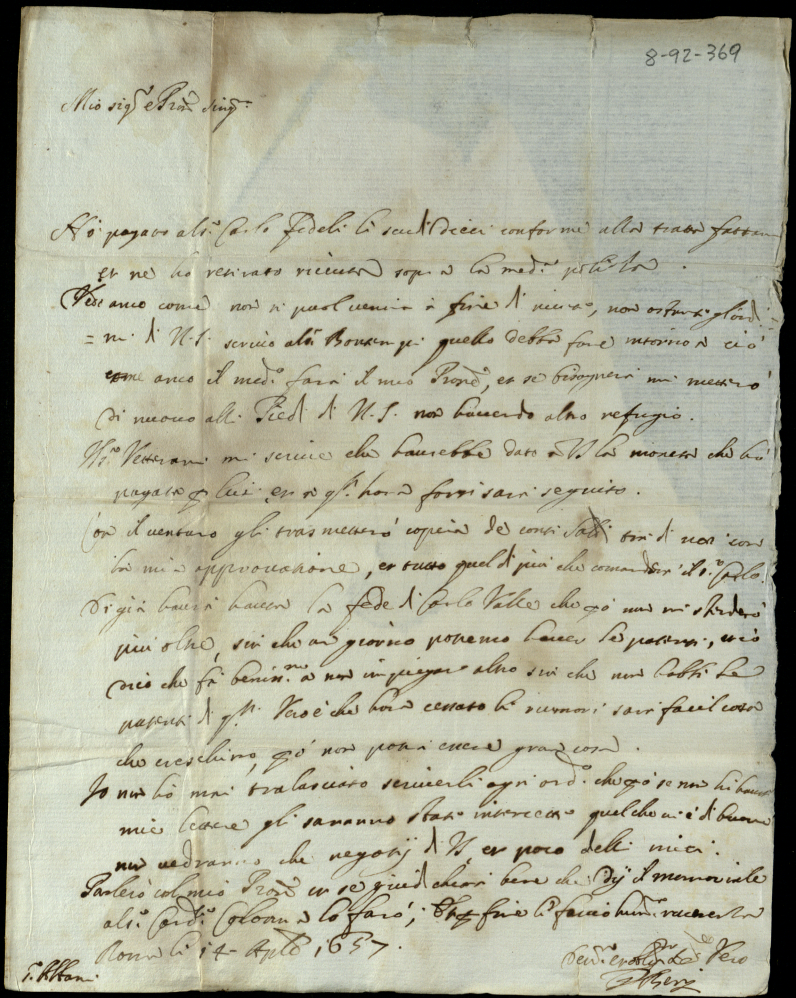 8-92-369
Mio sig.r e Pron. sing.
Hò pagato al s.r Carlo Fedeli li scudi dieci conforme alla tratta fattami
et ne ho retirato ricevuta sopra la med.a
Vedo anco come non si puol venire à fine di non ostante gl'ordi
=ni di N.S. scrivo al quello debba fare intorno a ciò
come anco il med.o farà il mio Prone, et se bisognerà mi metterò
di nuovo alli Piedi di N.S. non havendo altro refugio.
Veterani mi scrive che haverebbe dato a VS la moneta che hò
pagata p lui et a q.st' hora forsi sarà seguito.
Con il venturo gli trasmetterò copia de conti non con
la mia approvatione, et tutto quel di più che comanderà il s.r Carlo.
Di già haverà havuta la fede di Carlo Valle che però non mi stenderò
più oltre, sin che un giorno potremo havere le patenti, et ciò
dico che fà benissimo a non impiegare altro sin che non habbi le
patenti di q.sti. Vero è che hora cessato li rumori sarà facil cosa
che creschino, però non potrà essere gran cosa.
Io non hò mai tralasciato scriverli ogni ord.o che però se non hà havuto
mie lettere gli saranno state intercette quel che vi è di buono
non vedranno che negotij di VS et poco delli miei.
Parlerò col mio Prone et se giudicherà bene che dij il memoriale
al s.r Card. Colonna lo farò; fine li faccio hum. reverenza
Roma li 14 1657.
Vero
s.r Albani